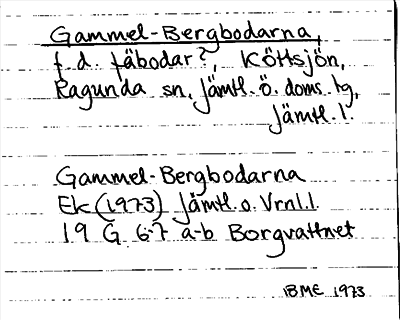 Gammel-Bergbodarna,
f.d. fäbodar?, Köttsjön,
Ragunda sn, Jämtl. ö. doms. tg,
Jämtl. l.
Gammel-Bergbodarna
Ek (1973) Jämtl. o. Vrnl.l
19 G 6-7 a-b Borgvattnet
BME 1973